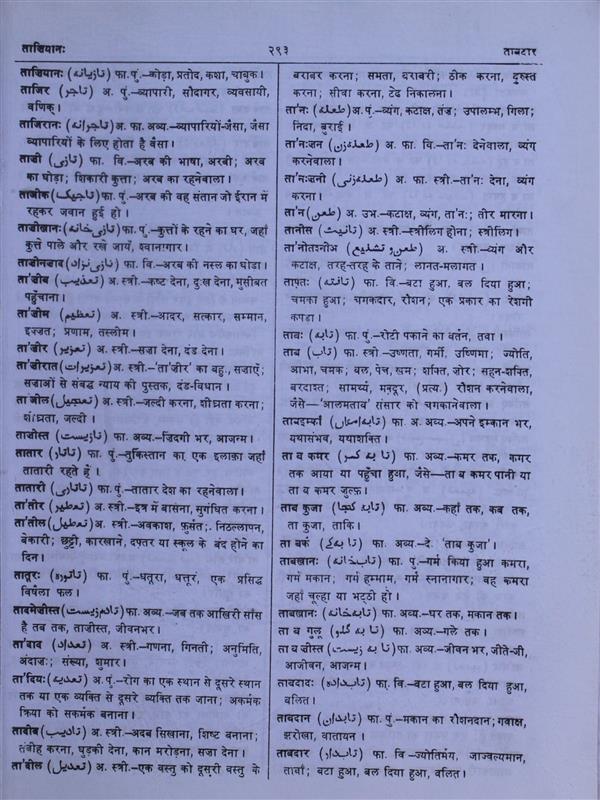 ताज़ियानः
२९३
ताबदार
ताज़ियानः (تازیانه) फा. पुं.–कोड़ा, प्रतोद, कशा, चाबुक।
ताजिर (تاجر) अ. पुं.–व्यापारी, सौदागर, व्यवसायी,
वणिक्।
ताजिरानः (تاجرانه) अ. फा. अव्य.–व्यापारियों-जैसा, जैसा
व्यापारियों के लिए होता है वैसा।
ताज़ी (تازی) फा. वि.–अरब की भाषा, अरबी; अरब
का घोड़ा; शिकारी कुत्ता; अरब का रहनेवाला।
ताजीक (تاجیک) फा. पुं.–अरब की वह संतान जो ईरान में
रहकर जवान हुई हो।
ताज़ीखानः (تازی خانه) फा. पुं.–कुत्तों के रहने का घर, जहाँ
कुत्ते पाले और रखे जायें, श्वानागार।
ताज़ीनज़ाद (تازی نژاد) फा. वि.–अरब की नस्ल का घोड़ा।
ता'ज़ीब (تعذیب) अ. स्त्री.–कष्ट देना, दुःख देना, मुसीबत
पहुँचाना।
ता'ज़ीम (تعظیم) अ. स्त्री.–आदर, सत्कार, सम्मान,
इज़्ज़त; प्रणाम, तस्लीम।
ता'ज़ीर (تعزیر) अ. स्त्री.–सज़ा देना, दंड देना।
ता'ज़ीरात (تعزیرات) अ. स्त्री.–'ता'ज़ीर' का बहु., सज़ाएँ;
सज़ाओं से संबद्ध न्याय की पुस्तक, दंड-विधान।
ता'जील (تعجیل) अ. स्त्री.–जल्दी करना, शीघ्रता करना;
शीघ्रता, जल्दी।
ताज़ीस्त (تازیست) फा. अव्य.–ज़िंदगी भर, आजन्म।
तातार (تاتار) फा. पुं.–तुर्किस्तान का एक इलाक़ा जहाँ
तातारी रहते हैं।
तातारी (تاتاری) फा. पुं.–तातार देश का रहनेवाला।
ता'तीर (تعطیر) अ. स्त्री.–इत्र में बासना, सुगंधित करना।
ता'तील (تعطیل) अ. स्त्री.–अवकाश, फ़ुर्सत; निठल्लापन,
बेकारी; छुट्टी, कारखाने, दफ़्तर या स्कूल के बंद होने का
दिन।
तातूरः (تاتوره) फा. पुं.–धतूरा, धत्तूर, एक प्रसिद्ध
विषैला फल।
तादमेज़ीस्त (تادم زیست) फा. अव्य.–जब तक आखिरी साँस
है तब तक, ताज़ीस्त, जीवनभर।
ता'दाद (تعداد) अ. स्त्री.–गणना, गिनती; अनुमिति,
अंदाज़ः; संख्या, शुमार।
ता'दियः (تعدیه) अ. पुं.–रोग का एक स्थान से दूसरे स्थान
तक या एक व्यक्ति से दूसरे व्यक्ति तक जाना; अकर्मक
क्रिया को सकर्मक बनाना।
तादीब (تادیب) अ. स्त्री.–अदब सिखाना, शिष्ट बनाना;
तंबीह करना, घुड़की देना, कान मरोड़ना, सज़ा देना।
ता'दील (تعدیل) अ. स्त्री.–एक वस्तु को दूसरी वस्तु के
बराबर करना; समता, बराबरी; ठीक करना, दुरुस्त
करना; सीधा करना, टेढ़ निकालना।
ता'नः (طعنه) अ. पुं.–व्यंग, कटाक्ष, तंज़; उपालम्भ, गिला;
निंदा, बुराई।
ता'नःज़न (طعنه زن) अ. फा. वि.–ता'नः देनेवाला, व्यंग
करनेवाला।
ता'नःज़नी (طعنه زنی) अ. फा. स्त्री.–ता'नः देना, व्यंग
करना।
ता'न (طعن) अ. उभ.–कटाक्ष, व्यंग, ता'नः; तीर मारना।
तानीस (تانیث) अ. स्त्री.–स्त्रीलिंग होना; स्त्रीलिंग।
ता'नोतश्नीअ (طعن و تشنیع) अ. स्त्री.–व्यंग और
कटाक्ष, तरह-तरह के ताने; लानत-मलामत।
ताफ़्तः (تافته) फा. वि.–बटा हुआ, बल दिया हुआ;
चमका हुआ; चमकदार, रौशन; एक प्रकार का रेशमी
कपड़ा।
ताबः (تابه) फा. पुं.–रोटी पकाने का बर्तन, तवा।
ताब (تاب) फा. स्त्री.–उष्णता, गर्मी, उष्णिमा; ज्योति,
आभा, चमक; बल, पेच, खम; शक्ति, ज़ोर; सहन-शक्ति,
बरदाश्त; सामर्थ्य, मक़्दूर, (प्रत्य.) रौशन करनेवाला,
जैसे–'आलमताब' संसार को चमकानेवाला।
ताबइम्काँ (تابه امکاں) फा. अ. अव्य.–अपने इम्कान भर,
यथासंभव, यथाशक्ति।
ता ब कमर (تا به کمر) फा. अव्य.–कमर तक, कमर
तक आया या पहुँचा हुआ, जैसे–ता ब कमर पानी या
ता ब कमर जुल्फ़।
ताब कुजा (تابه کجا) फा. अव्य.–कहाँ तक, कब तक,
ता कुजा, ताकि।
ता बके (تا به کے) फा. अव्य.–दे. 'ताब कुजा'।
ताबखानः (تاب خانه) फा. पुं.–गर्म किया हुआ कमरा,
गर्म मकान; गर्म हम्माम, गर्म स्नानागार; वह कमरा
जहाँ चूल्हा या भट्ठी हो।
ताबखानः (تابه خانه) फा. अव्य.–घर तक, मकान तक।
ता ब गुलू (تا به گلو) फा. अव्य.–गले तक।
ता ब ज़ीस्त (تا به زیست) फा. अव्य.–जीवन भर, जीते-जी,
आजीवन, आजन्म।
ताबदादः (تابداده) फा. वि.–बटा हुआ, बल दिया हुआ,
वलित।
ताबदान (تابدان) फा. पुं.–मकान का रौशनदान; गवाक्ष,
झरोखा, वातायन।
ताबदार (تابدار) फा. वि–ज्योतिर्मय, जाज्वल्यमान,
ताबाँ; बटा हुआ, बल दिया हुआ, वलित।